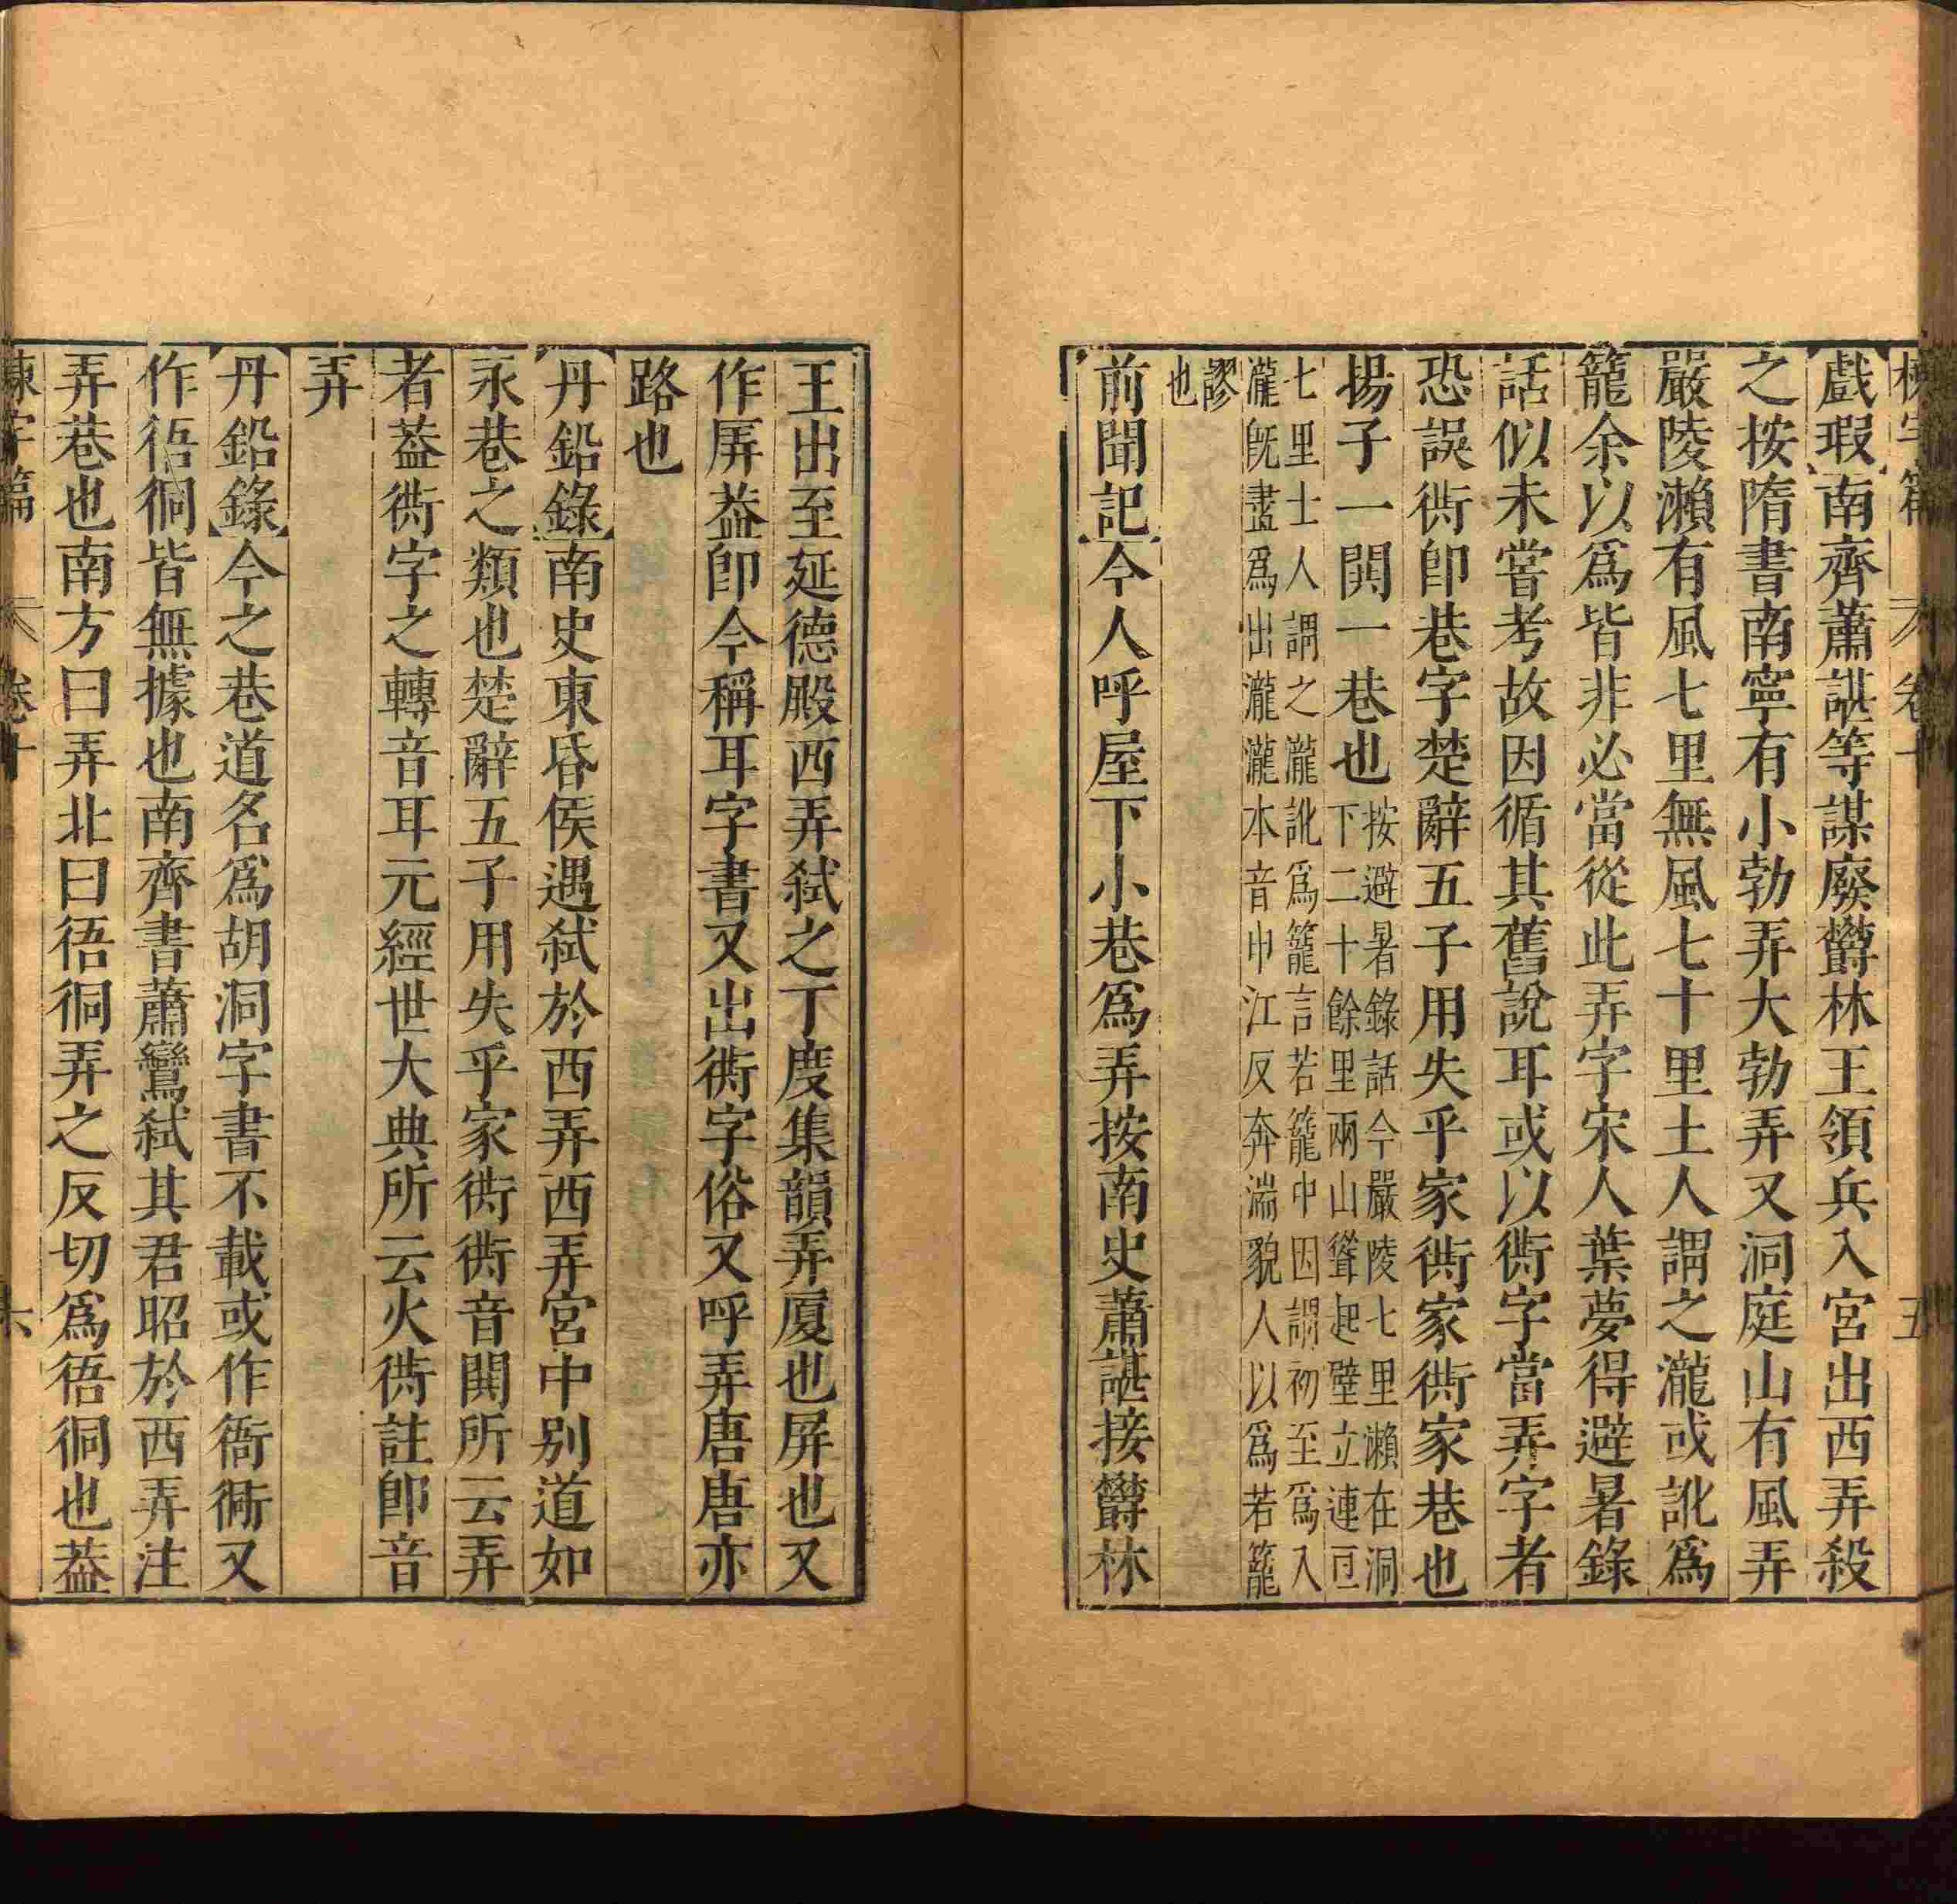 戲瑕南齊蕭諶等謀廢欝林王領兵入宮出西弄殺
之按隋書南寧有小勃弄大勃弄又洞庭山有風弄
嚴陵瀨有風七里無風七十里土人謂之瀧或訛爲
籠余以爲皆非必當從此弄字宋人葉夢得避暑錄
話似未嘗考故因循其舊說耳或以衖字當弄字者
恐誤衖卽巷字楚辭五子用失乎家衖家衖家巷也
揚子一閧一巷也按避暑錄話今嚴陵七里瀨在洞
下二十餘里兩山聳起壁立連亘
七里士人謂之瀧訛爲籠言若籠中因謂初至爲入
瀧旣盡爲出瀧瀧本音申江反奔湍貌人以爲若籠
謬
也
前聞記今人呼屋下小巷爲弄按南史蕭諶接欝林
王出至延德殿西弄弑之丁度集韻弄厦也屏也又
作屏葢卽今稱耳字書又出衖字俗又呼弄唐唐亦
路也
丹鉛錄南史東昏侯遇弑於西弄西弄宮中别道如
永巷之類也楚辭五子用失乎家衖衖音閧所云弄
者葢衖字之轉音耳元經世大典所云火衖註卽音
弄
丹鉛錄今之巷道名爲胡洞字書不載或作衙衕又
作㣔徊皆無據也南齊書蕭鸞弑其君昭於西弄注
弄巷也南方曰弄北曰㣔徊弄之反切爲㣔徊也葢
卷十
六